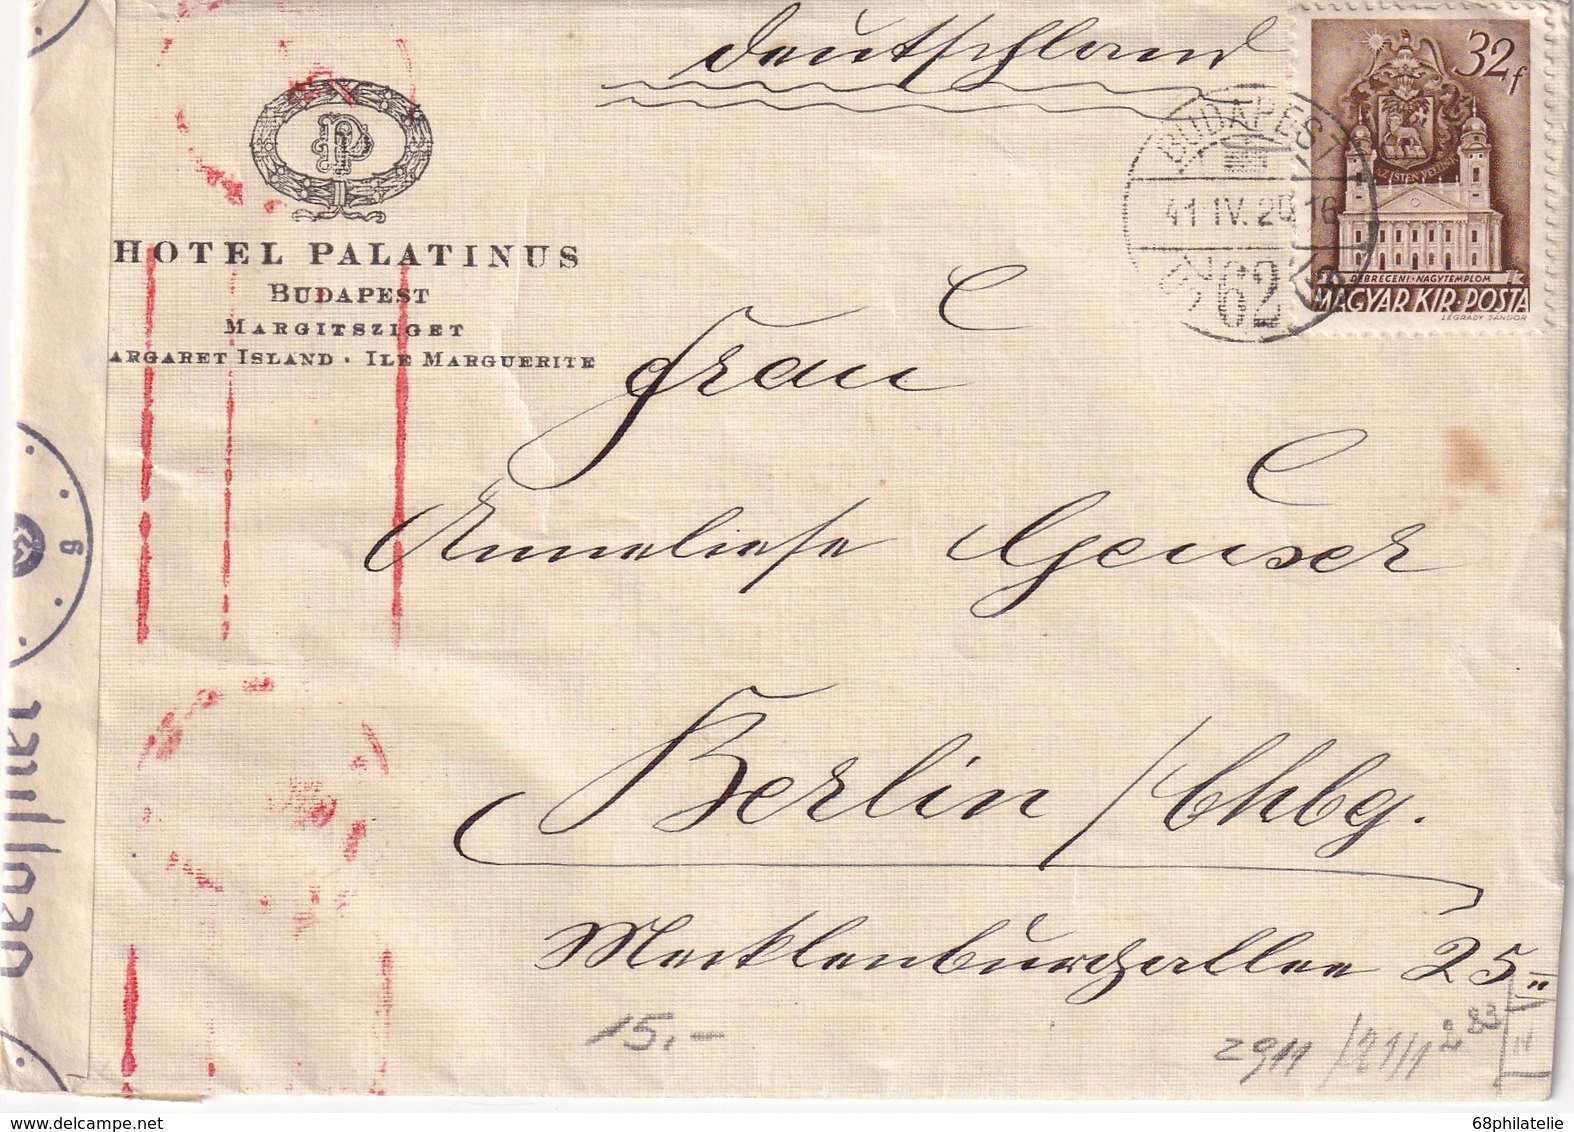 Deutschland
P
HOTEL PALATINUS
BUDAPEST
MARGITSZIGET
ARGARET ISLAND · ILE MARGUERITE
BUDAPEST
41 IV. 16
62
32f
AZ ISTEN VELÜNK
DEBRECENI-NAGYTEMPLOM
MAGYAR KIR. POSTA
LÉGRÁDY SÁNDOR
Frau
Anneliese Geuser
Berlin / Chbg.
Mecklenburgallee 25 II
15,-
2911
g
Geöffnet
68philatelie